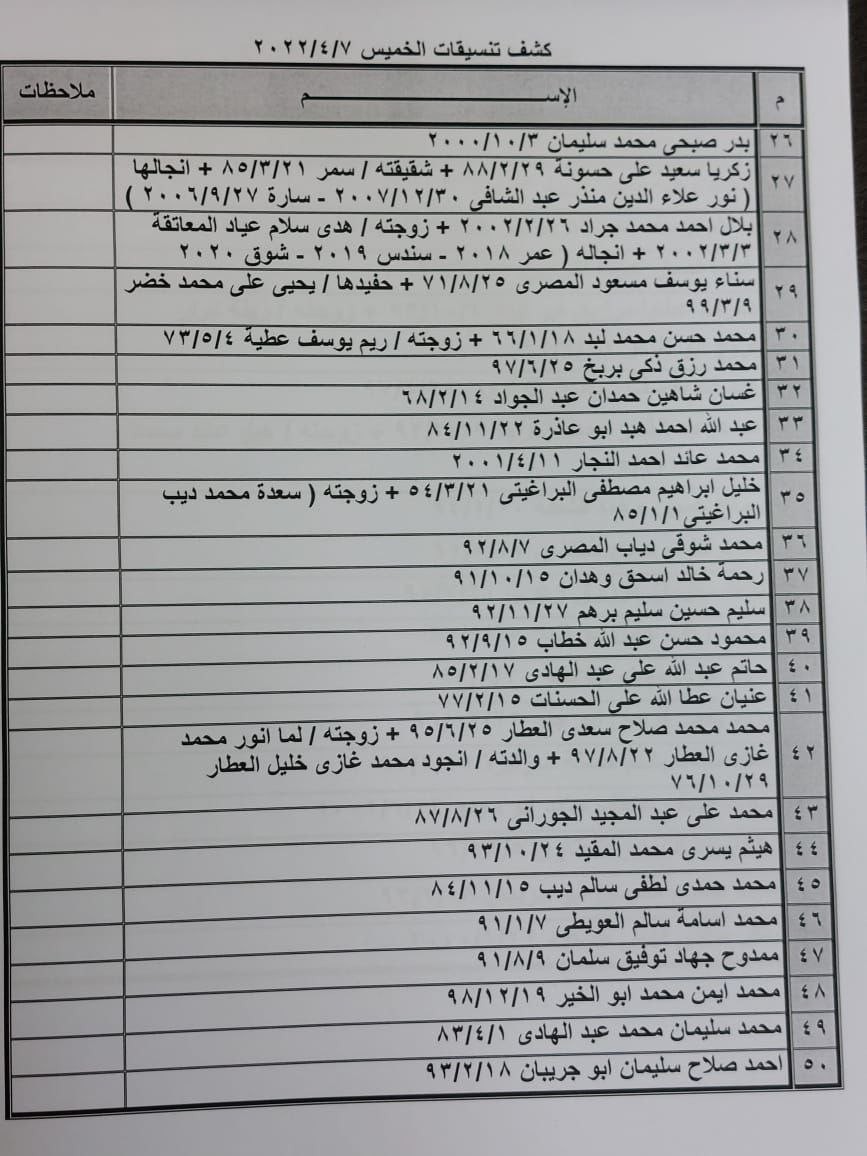 كشف تنسيقات الخميس ٢٠٢٢/٤/٧
م الإســـــــــم ملاحظات
٢٦ بدر صبحى محمد سليمان ٢٠٠٠/١٠/٣
٢٧ زكريا سعيد على حسونة ٨٨/٢/٢٩ + شقيقته / سمر ٨٥/٣/٢١ + انجالها
( نور علاء الدين منذر عبد الشافى ٢٠٠٧/١٢/٣٠ - سارة ٢٠٠٦/٩/٢٧ )
٢٨ بلال احمد محمد جراد ٢٠٠٢/٢/٢٦ + زوجته / هدى سلام عياد المعاتقة
٢٠٠٢/٣/٣ + انجاله ( عمر ٢٠١٨ - سندس ٢٠١٩ - شوق ٢٠٢٠
٢٩ سناء يوسف مسعود المصرى ٧١/٨/٢٥ + حفيدها / يحيى على محمد خضر
٩٩/٣/٩
٣٠ محمد حسن محمد لبد ٦٦/١/١٨ + زوجته / ريم يوسف عطية ٧٣/٥/٤
٣١ محمد رزق ذكى بربخ ٩٧/٦/٢٥
٣٢ غسان شاهين حمدان عبد الجواد ٦٨/٢/١٤
٣٣ عبد الله احمد هبد ابو عاذرة ٨٤/١١/٢٢
٣٤ محمد عائد احمد النجار ٢٠٠١/٤/١١
٣٥ خليل ابراهيم مصطفى البراغيتى ٥٤/٣/٢١ + زوجته ( سعدة محمد ديب
البراغيتى٨٥/١/١
٣٦ محمد شوقى دياب المصرى ٩٢/٨/٧
٣٧ رحمة خالد اسحق وهدان ٩١/١٠/١٥
٣٨ سليم حسين سليم برهم ٩٢/١١/٢٧
٣٩ محمود حسن عبد الله خطاب ٩٢/٩/١٥
٤٠ حاتم عبد الله على عبد الهادى ٨٥/٢/١٧
٤١ عنيان عطا الله على الحسنات ٧٧/٢/١٥
٤٢ محمد محمد صلاح سعدى العطار ٩٥/٦/٢٥ + زوجته / لما انور محمد
غازى العطار ٩٧/٨/٢٢ + والدته / انجود محمد غازى خليل العطار
٧٦/١٠/٢٩
٤٣ محمد على عبد المجيد الجورانى ٨٧/٨/٢٦
٤٤ هيثم يسرى محمد المقيد ٩٣/١٠/٢٤
٤٥ محمد حمدى لطفى سالم ديب ٨٤/١١/١٥
٤٦ محمد اسامة سالم العويطى ٩١/١/٧
٤٧ ممدوح جهاد توفيق سلمان ٩١/٨/٩
٤٨ محمد ايمن محمد ابو الخير ٩٨/١٢/١٩
٤٩ محمد سليمان محمد عبد الهادى ٨٣/٤/١
٥٠ احمد صلاح سليمان ابو جريبان ٩٣/٢/١٨